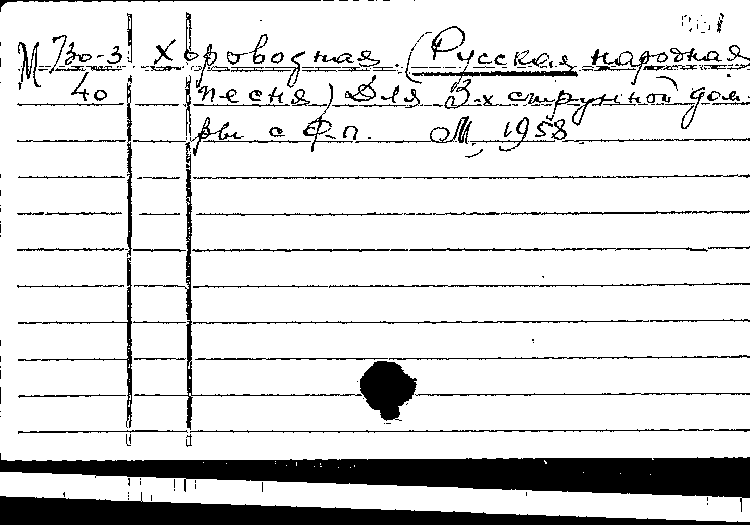 861
М 730-3 Хороводная. (Русская народная
40 песня) Для 3-х струнной дом-
ры с ф-п. М, 1958